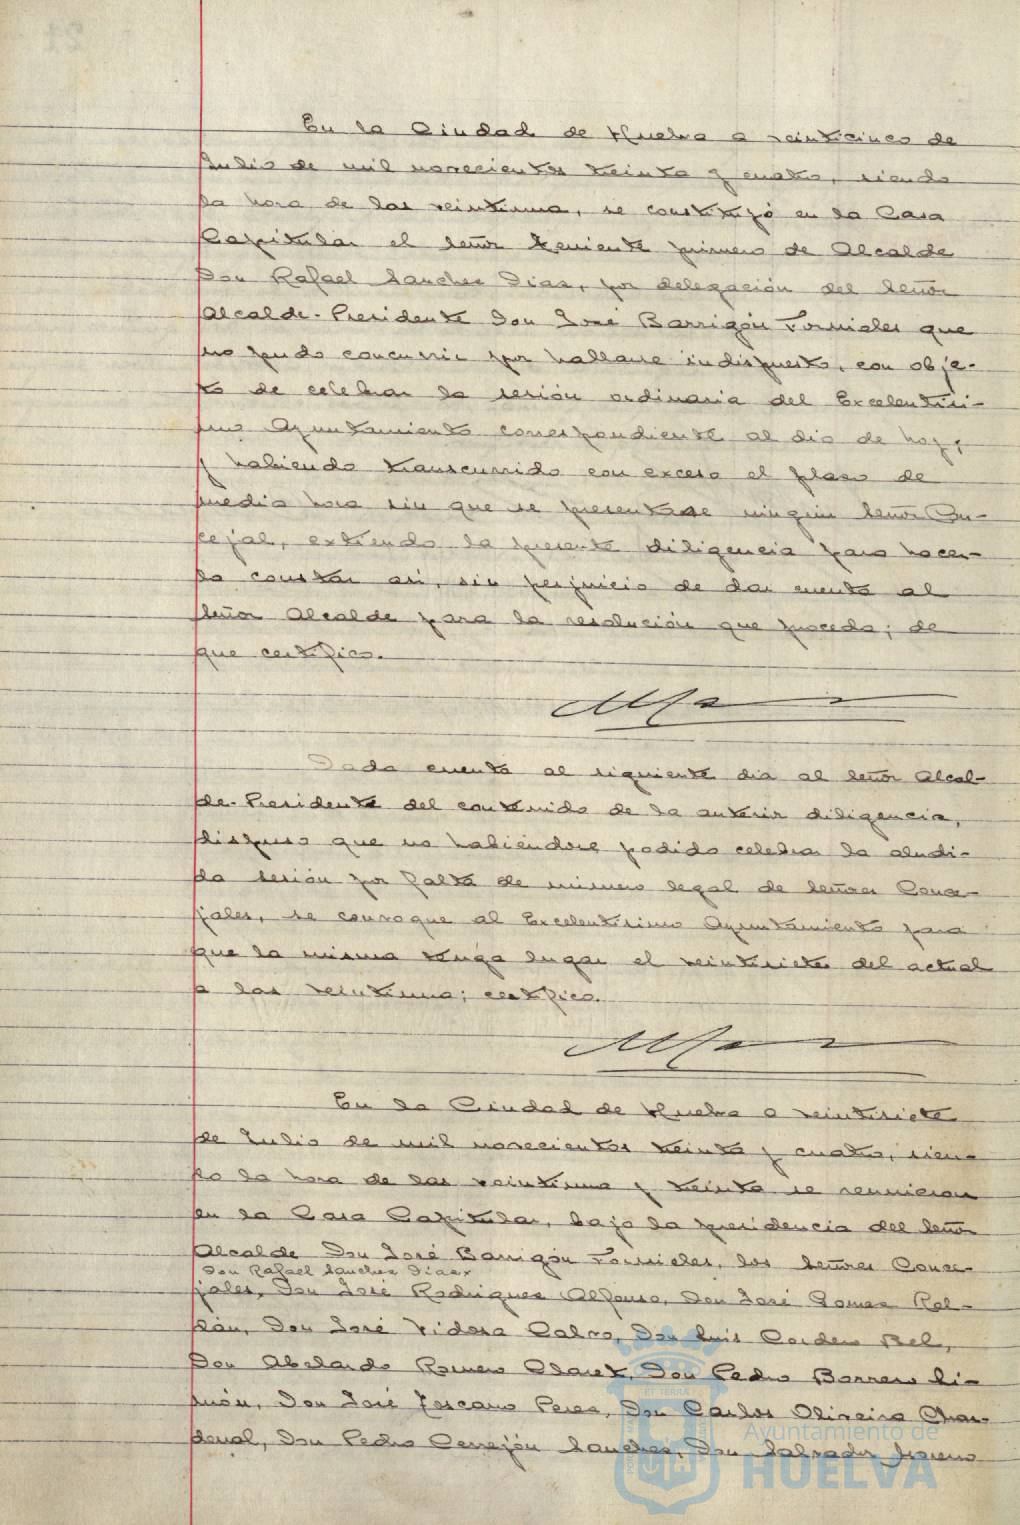 En la Ciudad de Huelva a veinticinco de
Julio de mil novecientos treinta y cuatro, siendo
la hora de las veintiuna, se constituyó en la Casa
Capitular el Señor Teniente primero de Alcalde
Don Rafael Sanchez Diaz, por delegación del Señor
Alcalde-Presidente Don José Barrigón Fornieles que
no pudo concurrir por hallarse indispuesto, con obje-
to de celebrar la sesión ordinaria del Excelentísi-
mo Ayuntamiento correspondiente al dia de hoy;
y habiendo transcurrido con exceso el plazo de
media hora sin que se presentase ningún Señor Con-
cejal, extiendo la presente diligencia para hacer-
lo constar así, sin perjuicio de dar cuenta al
Señor Alcalde para la resolución que proceda; de
que certifico.
Dada cuenta al siguiente dia al Señor Alcal-
de-Presidente del contenido de la anterior diligencia,
dispuso que no habiéndose podido celebrar la aludi-
da sesión por falta de número legal de Señores Conce-
jales, se convoque al Excelentísimo Ayuntamiento para
que la misma tenga lugar el veintisiete del actual
a las veintiuna; certifico.
En la Ciudad de Huelva a veintisiete
de Julio de mil novecientos treinta y cuatro, sien-
do la hora de las veintiuna y treinta se reunieron
en la Casa Capitular, bajo la presidencia del Señor
Alcalde Don José Barrigón Fornieles, los Señores Conce-
Don Rafael Sanchez Diaz
jales, Don José Rodriguez Alfonso, Don José Pomar Rol-
dán, Don José Vidosa Calvo, Don Luis Cordero Bel,
Don Abelardo Romero Claret, Don Pedro Borrero Li-
món, Don José Toscano Perez, Don Carlos Oliveira Char-
denal, Don Pedro Cerrejón Sanchez, Don Salvador Moreno
Ayuntamiento de
HUELVA